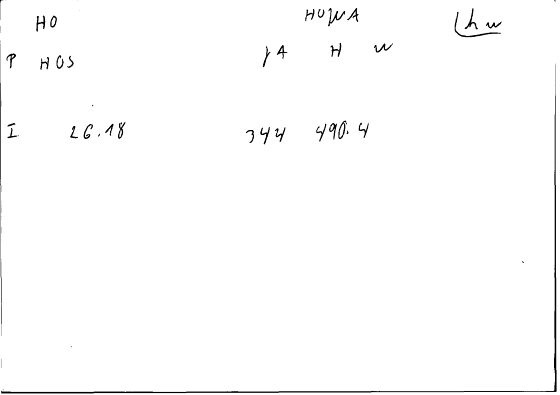 HO HOWA
P HOS A H W
I 26.18 344 490.4